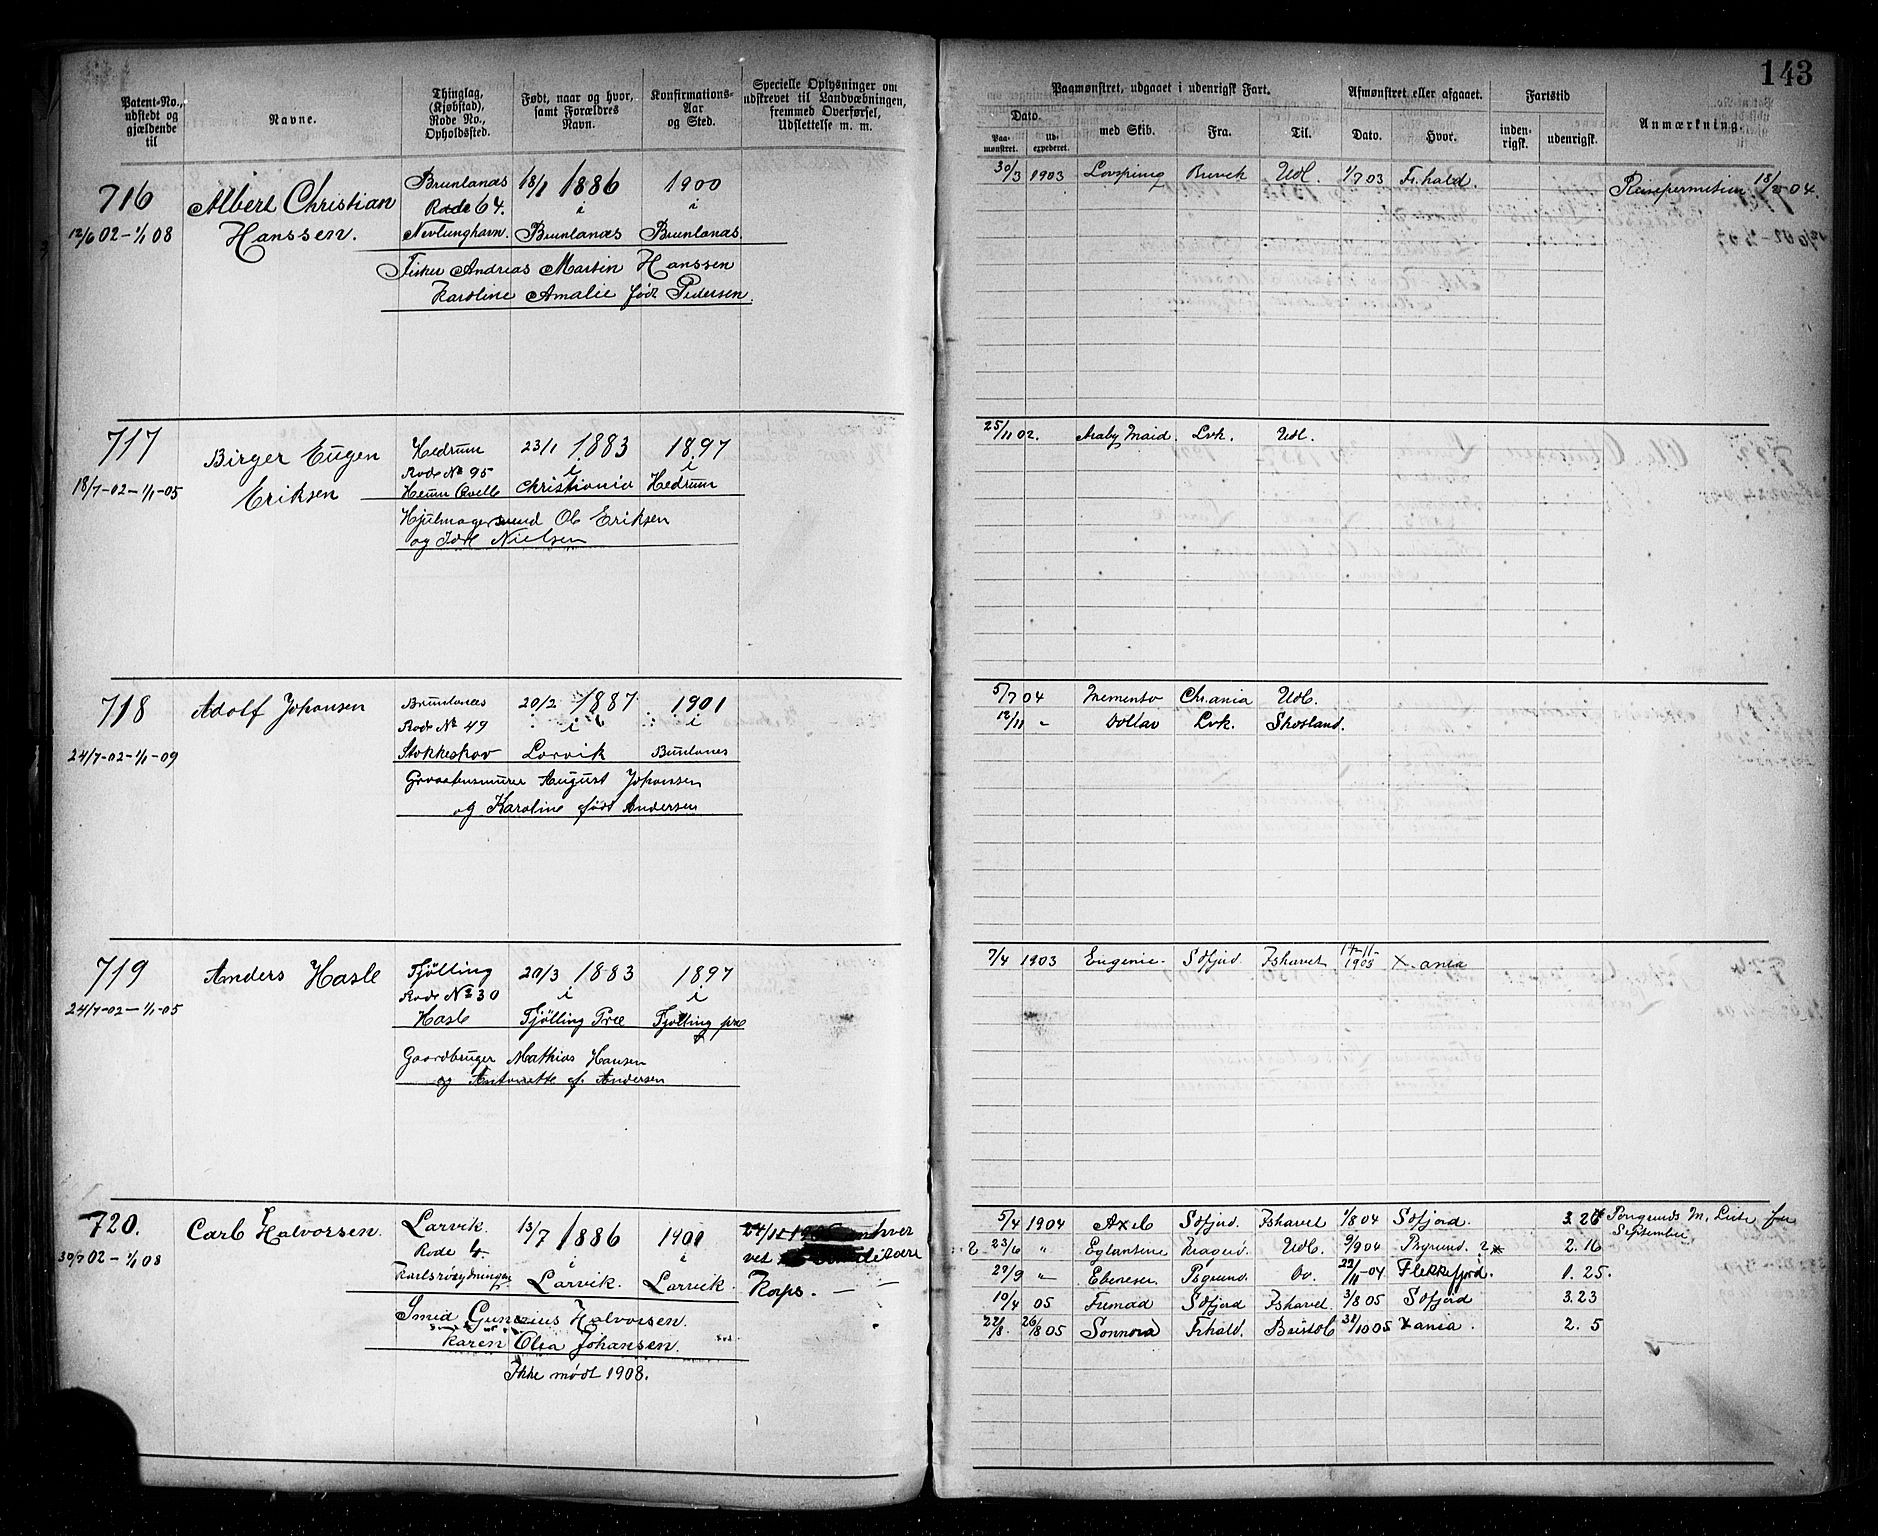 143
Patent-No., udstedt og gjældende til
Navne.
Thinglag, (Kjøbstad), Rode No., Opholdssted.
Født, naar og hvor, samt Forældres Navn.
Konfirmations-Aar og Sted.
Specielle Oplysninger om udskrevet til Landvæbningen, fremmed Overførsel, Udslettelse m. m.
Paamønstret, udgaaet i udenrigsk Fart.
Afmønstret eller afgaaet.
Fartstid
Anmærkning.
Dato.
Paamønstret.
Udexpederet.
med Skib.
Fra.
Til.
Dato.
Hvor.
indenrigsk.
udenrigsk.
716 Albert Christian Brunlanæs 18/1 1886 1900
Rode 64. i i
12/6 02-1/1 08 Hanssen. Nevlunghavn. Brunlanæs Brunlanæs
Fisker Andreas Martin Hanssen
Karoline Amalie født Pedersen.
30/3 1903 Brevik Udl. 1/7 03 Fr.hald. 04.
717 Birger Eugen Hedrum 23/1 1883 1897
Rode No 95 i i
18/7-02-1/1-05 Eriksen Christiania Hedrum
Eriksen
og Nielsen
25/11 02. Maid. Lvk. Udl.
718 Adolf Johansen Brunlanæs 20/2 1887 1901
Rode No 49 i i
24/7-02-1/1-09 Stokkeskov Larvik Brunlanes
August Johansen
og Karoline født Andersen
5/7 04 Memento Chr.ania Udl.
12/11 " Lvk. Skotland.
719 Anders Hasle Tjölling 20/3 1883 1897
Rode No 30 i i
24/7-02-1/1-05 Hasle Tjölling Præ Tjølling præ
Gaardbruger Mathias Hansen
og Antonette f. Andersen
7/4 1903 Eugenie. Sdfjord Ishavet 1905 X.ania
720. Carl Halvorsen. Larvik. 13/7 1886 1901
Rode 4. i i
30/7 02-1/1 08 Larvik. Larvik.
Korps.
Smid Halvorsen.
Karen Olea Johansen.
Ikke mødt 1908.
5/4 1904 Axel Sdfjord. Ishavet 1/8 04 Sdfjord. 3.26
September
23/6 " Eglantine Kragerö. Udl. 9/9 04 Pgrund. 2.16
29/9 " Ebeneser Pgrund. Do. 22/11-04 Flekkefjord. 1.25.
10/4 05 Sdfjord Ishavet. 3/8 05 Sdfjord 3.23
22/8. 26/8 05 Sonnora Frhald. Bristol 31/10 05 Xania. 2.5